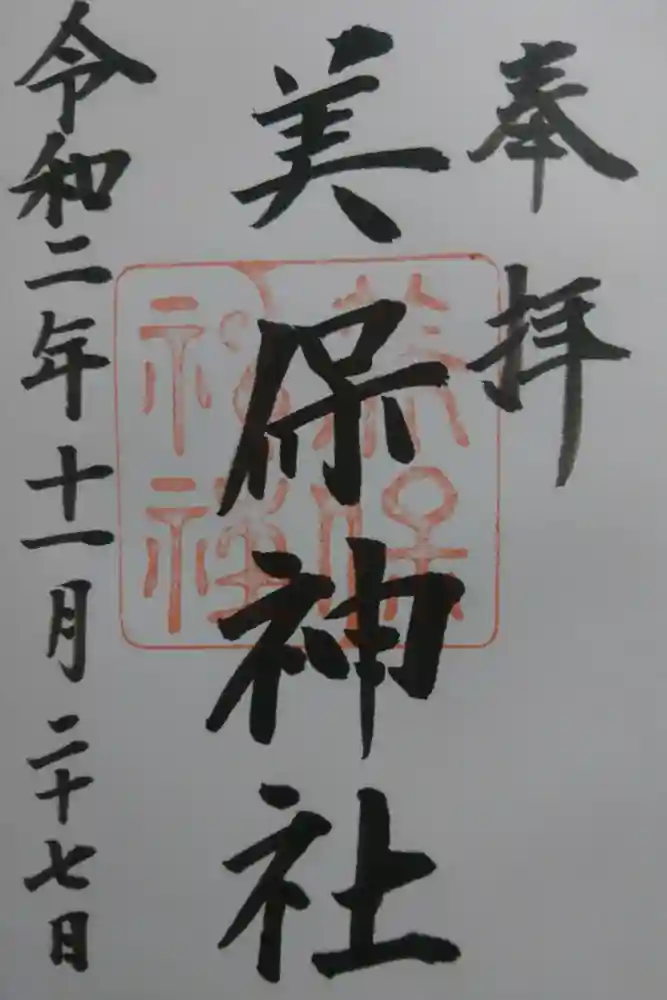 奉拝
美保神社
令和二年十一月二十七日
美保
神社